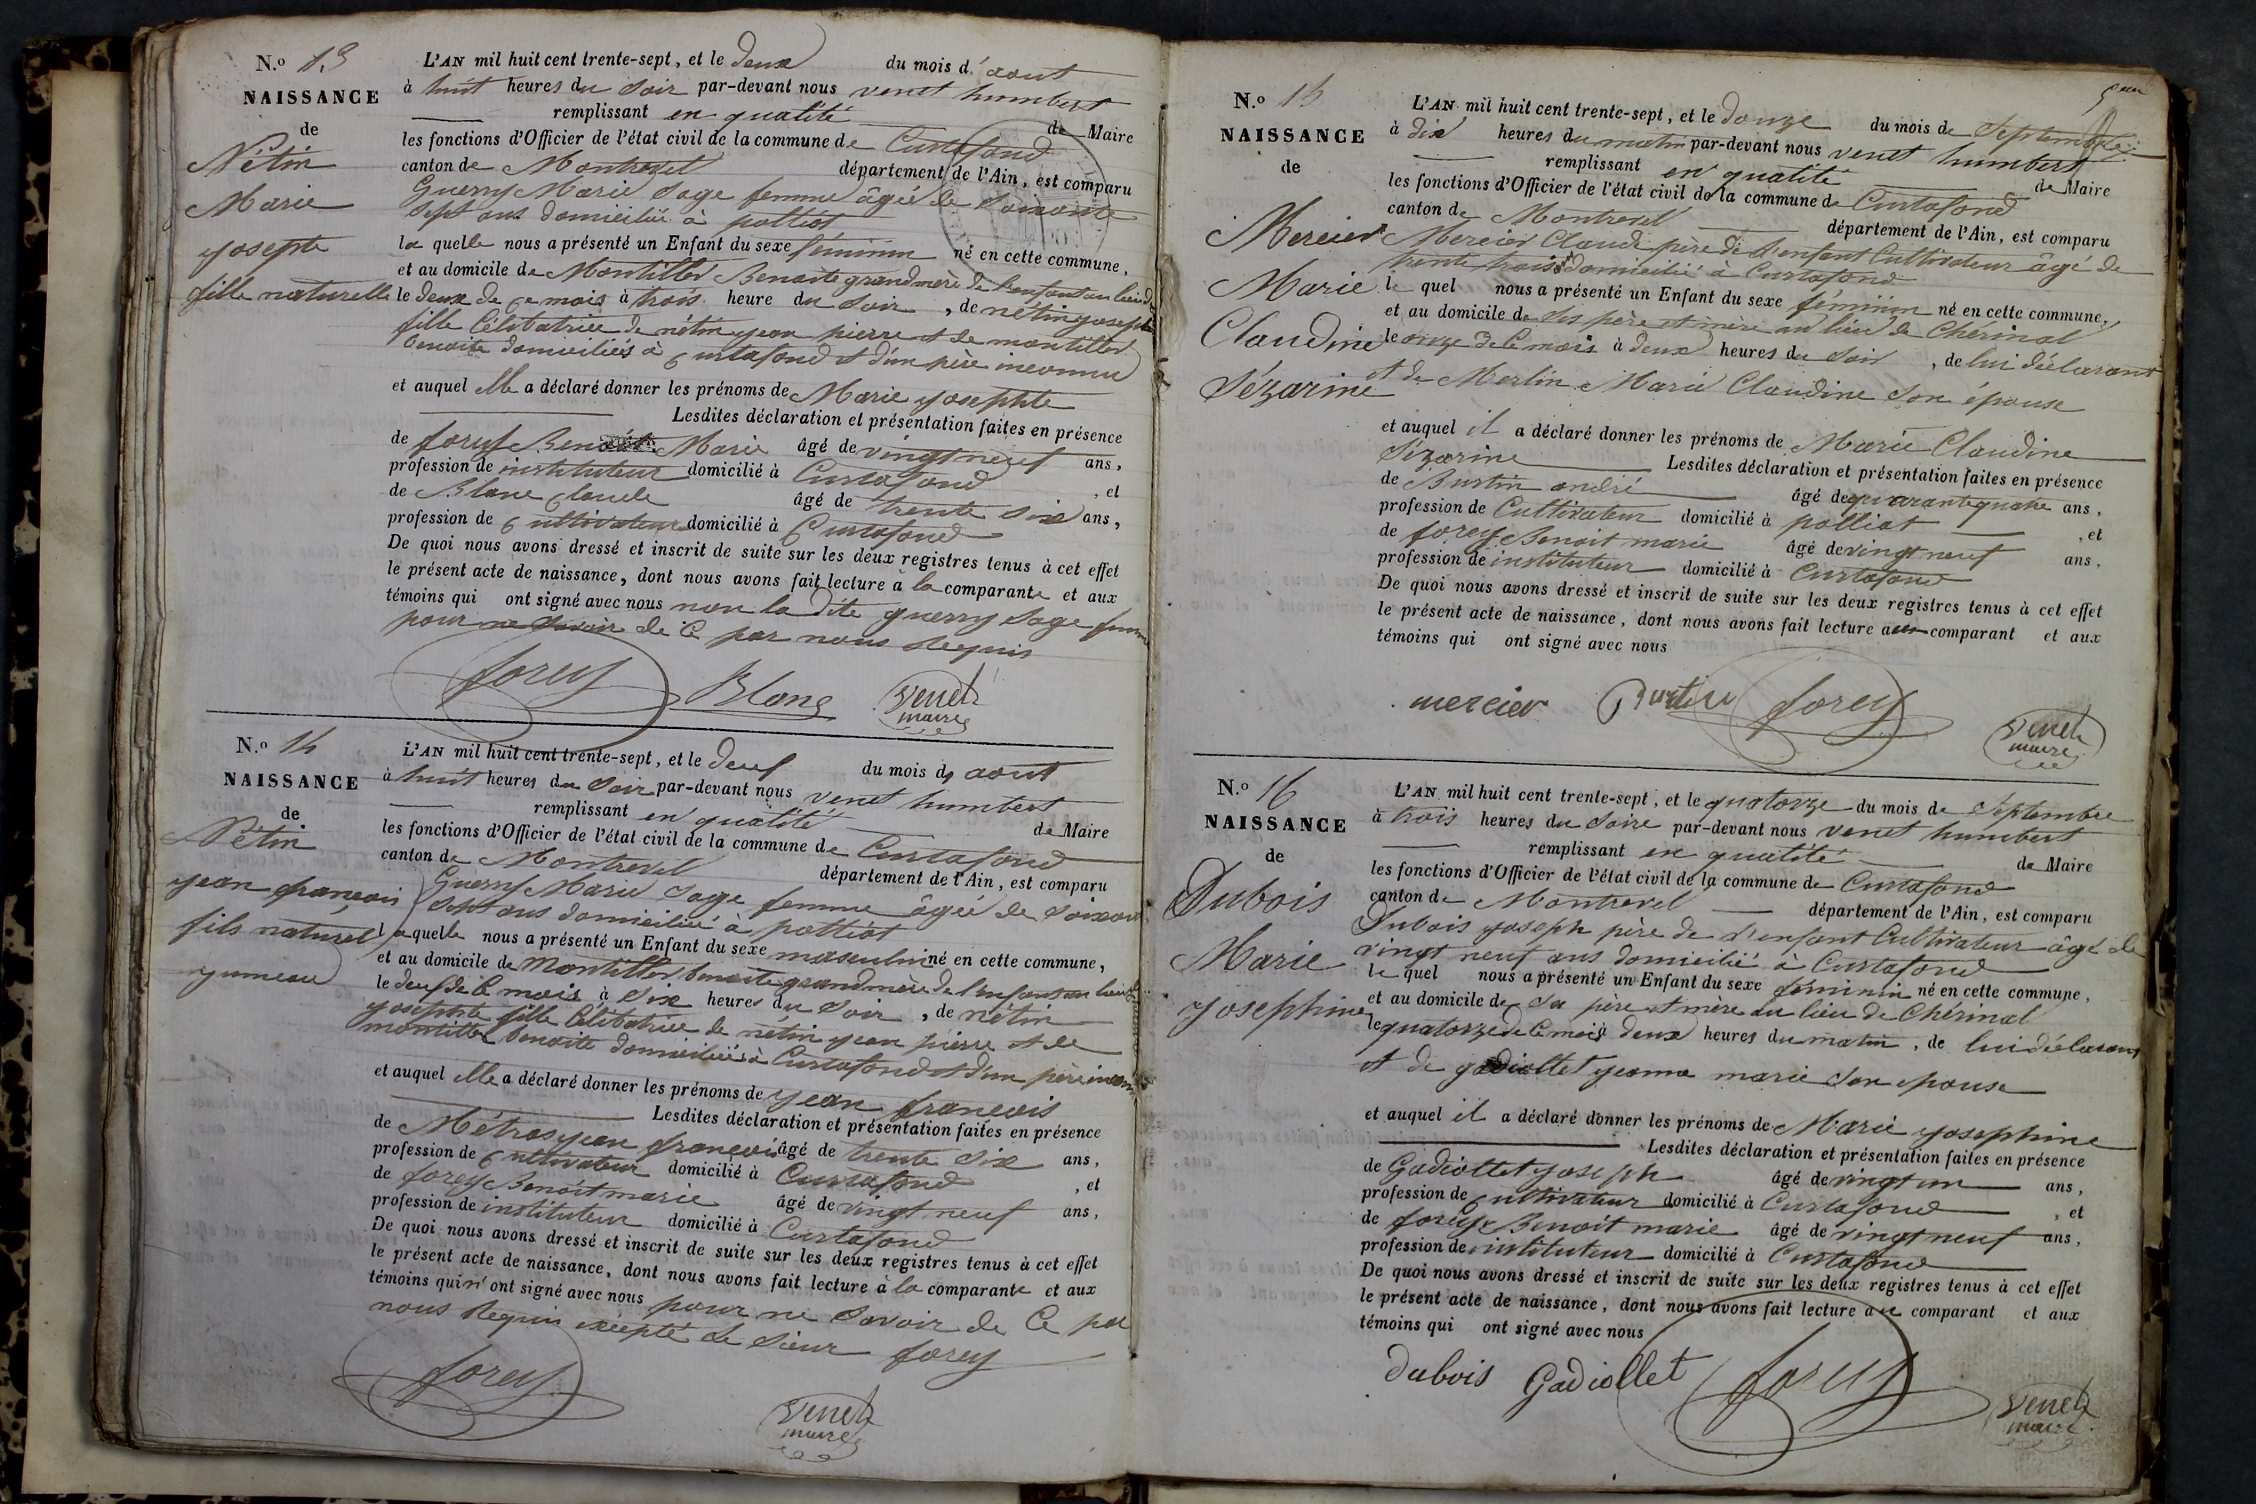 N.o 13
NAISSANCE
de
Nétin
Marie
josephte
fille naturelle
L'AN mil huit cent trente-sept, et le deux du mois d'aout
à huit heures du soir par-devant nous venet humbert
remplissant en qualité de Maire
les fonctions d'Officier de l'état civil de la commune de Curtafond
canton de Montrevel département de l'Ain, est comparu
Guerry Marie sage femme âgée de soixante
sept ans domiciliée à polliat
la quelle nous a présenté un Enfant du sexe féminin né en cette commune,
et au domicile de Montillier Benoite grandmère de l'enfant au lieu de
le deux de ce mois à trois heure du soir, de nétin josephte
fille Célibatrice de nétin jean pierre et de montillier
benoite domiciliés à Curtafond et d'un père inconnu
et auquel elle a déclaré donner les prénoms de Marie josephte
Lesdites déclaration et présentation faites en présence
de forey Benoit Marie âgé de vingt neuf ans,
profession de instituteur domicilié à Curtafond, et
de Blanc Claude âgé de trente six ans,
profession de Cultivateur domicilié à Curtafond
De quoi nous avons dressé et inscrit de suite sur les deux registres tenus à cet effet
le présent acte de naissance, dont nous avons fait lecture à la comparante et aux
témoins qui ont signé avec nous non la dite guerry sage femme
pour ne savoir de ce par nous Requis
forey Blanc Venet
maire
N.o 14
NAISSANCE
de
Nétin
jean françois
fils naturel
jumeau
L'AN mil huit cent trente-sept, et le deuf du mois de aout
à huit heures du soir par-devant nous venet humbert
remplissant en qualité de Maire
les fonctions d'Officier de l'état civil de la commune de Curtafond
canton de Montrevel département de l'Ain, est comparu
Guerry Marie sage femme âgée de soixante
sept ans domiciliée à polliat
laquelle nous a présenté un Enfant du sexe masculin né en cette commune,
et au domicile de Montillier benoite grandmère de l'enfant au lieu de
le deuf de Ce mois à six heures du soir, de nétin
josephte fille Célibatrice de nétin jean pierre et de
montillier benoite domiciliés à Curtafond et d'un père inconnu
et auquel elle a déclaré donner les prénoms de jean françois
Lesdites déclaration et présentation faites en présence
de Métras jean françois âgé de trente six ans,
profession de Cultivateur domicilié à Curtafond, et
de forey Benoit marie âgé de vingt neuf ans,
profession de instituteur domicilié à Curtafond
De quoi nous avons dressé et inscrit de suite sur les deux registres tenus à cet effet
le présent acte de naissance, dont nous avons fait lecture à la comparante et aux
témoins qui n'ont signé avec nous pour ne savoir de Ce par
nous Requis excepté le sieur forey
forey Venet
maire
N.o 15
NAISSANCE
de
Mercier
Marie
Claudine
Sézarine
L'AN mil huit cent trente-sept, et le douze du mois de Septembre
à dix heures du matin par-devant nous venet humbert
remplissant en qualité de Maire
les fonctions d'Officier de l'état civil de la commune de Curtafond
canton de Montrevel département de l'Ain, est comparu
Mercier Claude père de l'enfant Cultivateur âgé de
trente trois domicilié à Curtafond
le quel nous a présenté un Enfant du sexe féminin né en cette commune,
et au domicile de ses père et mère au lieu de Chérinal
le onze de Ce mois à deux heures du soir, de lui déclarant
et de Merlin Marie Claudine son épouse
et auquel il a déclaré donner les prénoms de Marie Claudine
Sézarine Lesdites déclaration et présentation faites en présence
de Burtin andré âgé de quarante quatre ans,
profession de Cultivateur domicilié à polliat, et
de forey Benoit marie âgé de vingt neuf ans,
profession de instituteur domicilié à Curtafond
De quoi nous avons dressé et inscrit de suite sur les deux registres tenus à cet effet
le présent acte de naissance, dont nous avons fait lecture au comparant et aux
témoins qui ont signé avec nous
mercier Burtin forey Venet
maire
N.o 16
NAISSANCE
de
Dubois
Marie
josephine
L'AN mil huit cent trente-sept, et le quatorze du mois de Septembre
à trois heures du soire par-devant nous venet humbert
remplissant en qualité de Maire
les fonctions d'Officier de l'état civil de la commune de Curtafond
canton de Montrevel département de l'Ain, est comparu
Dubois joseph père de l'enfant Cultivateur âgé de
vingt neuf ans domicilié à Curtafond
le quel nous a présenté un Enfant du sexe féminin né en cette commune,
et au domicile de ses père et mère au lieu de Chérinal
le quatorze de Ce mois à deux heures du matin, de lui déclarant
et de gadiollet jeanne marie son epouse
et auquel il a déclaré donner les prénoms de Marie josephine
Lesdites déclaration et présentation faites en présence
de Gadiollet joseph âgé de vingt un ans,
profession de Cultivateur domicilié à Curtafond, et
de forey Benoit marie âgé de vingt neuf ans,
profession de instituteur domicilié à Curtafond
De quoi nous avons dressé et inscrit de suite sur les deux registres tenus à cet effet
le présent acte de naissance, dont nous avons fait lecture au comparant et aux
témoins qui ont signé avec nous
dubois Gadiollet forey Venet
maire